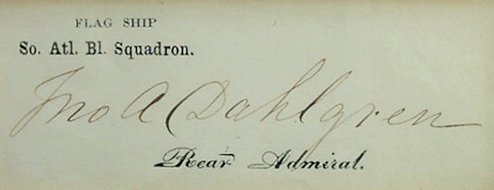 FLAG SHIP
So. Atl. Bl. Squadron.
Jno A Dahlgren
Rear Admiral.